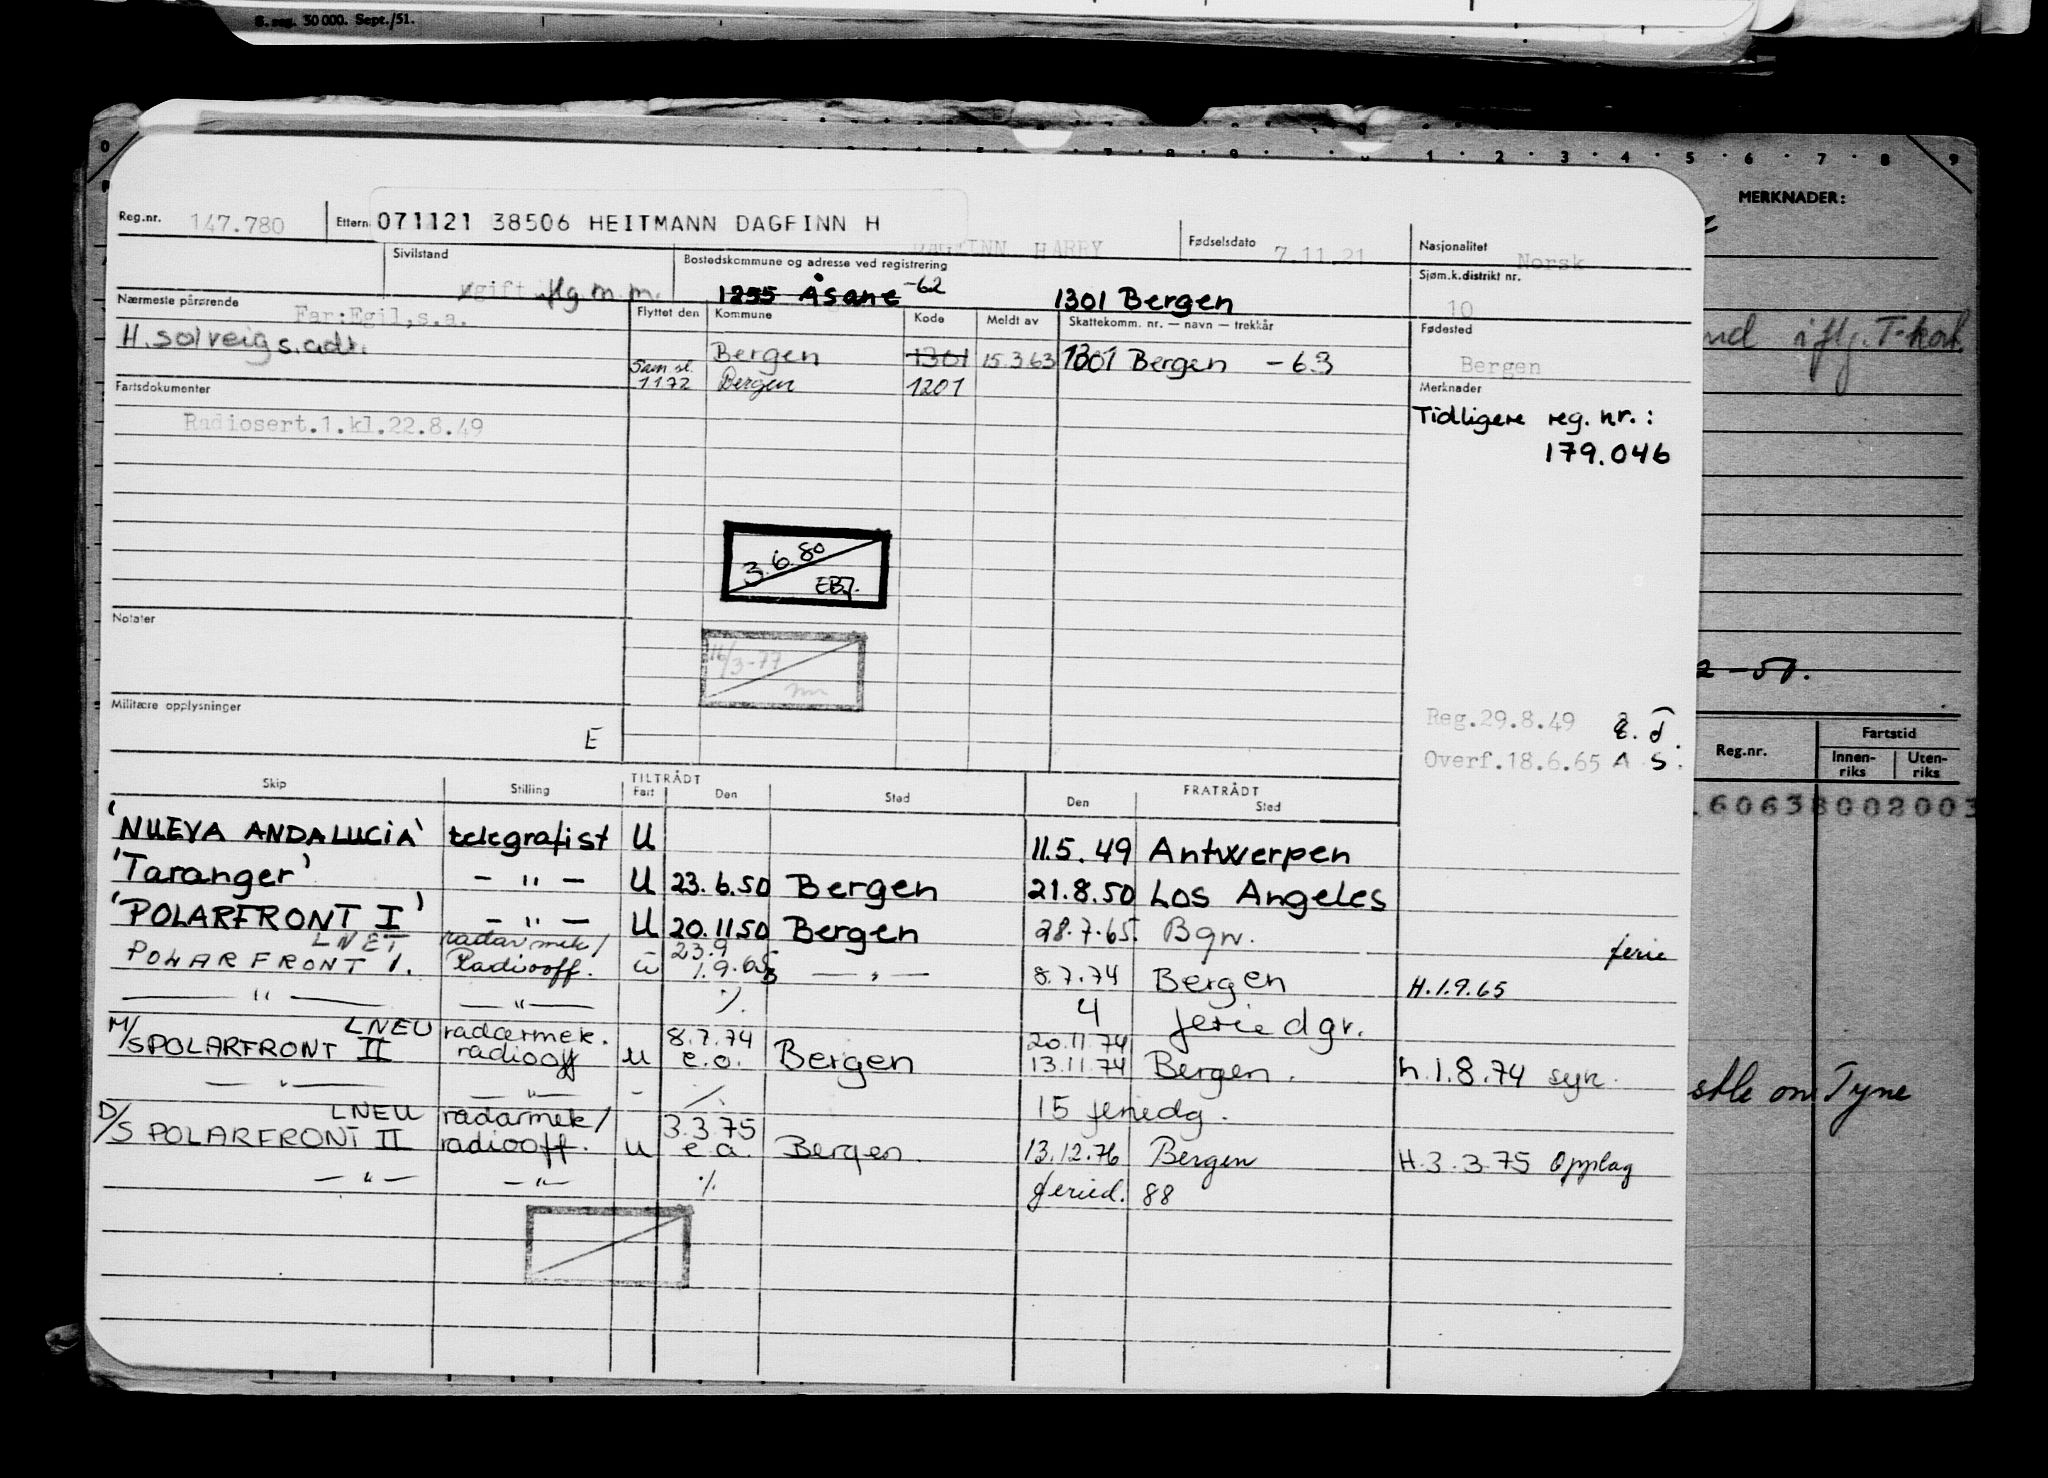 S. reg. 30 000. Sept./51.
0 1 2 3 4 5 6 7 8 9
MERKNADER:
Reg.nr. 147.780 Ettern 071121 38506 HEITMANN DAGFINN H
DAGFINN HARRY
Fødselsdato 7.11.21
Nasjonalitet Norsk
Sivilstand gift m.m.
Bostedskommune og adresse ved registrering
1255 Åsane -62 1301 Bergen
Sjøm.k.distrikt nr. 10
Nærmeste pårørende Far:Egil,s.a.
H. Solveig s.adr.
Flyttet den Kommune Kode Meldt av Skattekomm. nr. — navn — trekkår
Bergen 1301 15.3.63 1301 Bergen -63
1172 Bergen 1201
Fødested Bergen
Fartsdokumenter
Radiosert.1.kl.22.8.49
Merknader
Tidligere reg. nr.:
179.046
3.6.80
EBJ.
16/3-77
Notater
Militære opplysninger
E
Reg.29.8.49
Overf.18.6.65 A S.
nd i flg. T-kol.
2-51.
Reg.nr. Fartstid
Innen-riks Uten-riks
160638002003
stle on Tyne
TILTRÅDT FRATRÅDT
Skip Stilling Fart Den Sted Den Sted
'NUEVA ANDALUCIA' telegrafist U 11.5.49 Antwerpen
'Taranger' — " — U 23.6.50 Bergen 21.8.50 Los Angeles
'POLARFRONT I' — " — U 20.11.50 Bergen 28.7.65. Bgn. ferie
LNET radarmek/ 23.9
POLARFRONT I. Radiooff. u 1.9.65 — " — 8.7.74 Bergen H.1.9.65
— " — — " — ./. 4 feriedgr.
M/S POLARFRONT II LNEU radarmek. radiooff u 8.7.74 e.o. Bergen 20.11.74 13.11.74 Bergen. h.1.8.74 syk.
— " — — " — - ./. 15 feriedg.
D/S POLARFRONT II LNEU radarmek/ radiooff. u 3.3.75 e.a. Bergen. 13.12.76 Bergen H.3.3.75 Opplag
— " — — " — ./. feried. 88